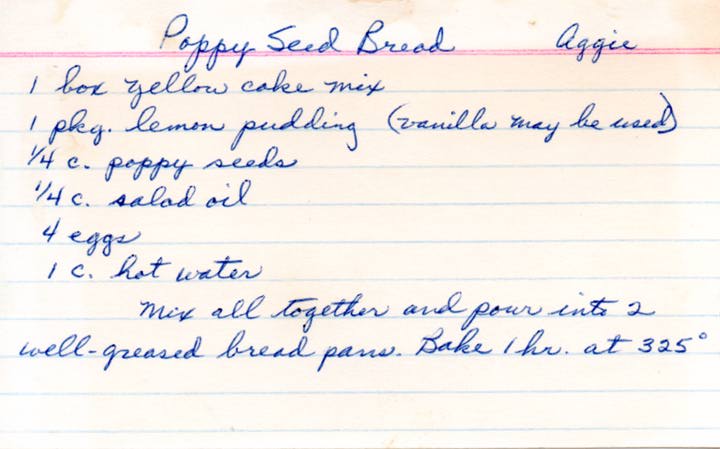 Poppy Seed Bread Aggie
1 box yellow cake mix
1 pkg. lemon pudding (vanilla may be used)
1/4 c. poppy seeds
1/4 c. salad oil
4 eggs
1 c. hot water
Mix all together and pour into 2
well-greased bread pans. Bake 1 hr. at 325°